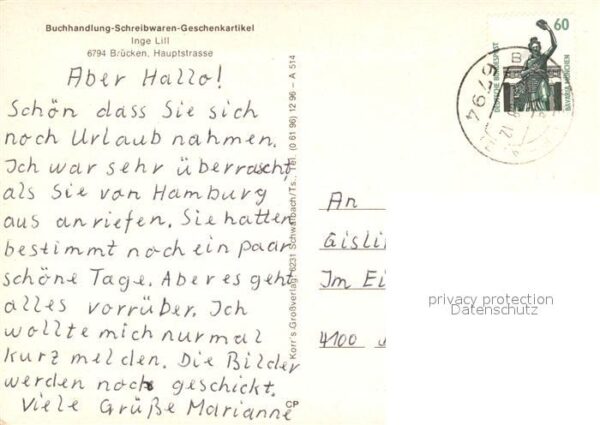 Buchhandlung-Schreibwaren-Geschenkartikel
Inge Lill
6794 Brücken, Hauptstrasse
Aber Hallo!
Schön dass Sie sich
noch Urlaub nahmen.
Ich war sehr überrascht
als Sie von Hamburg
aus anriefen. Sie hatten
bestimmt noch ein paar
schöne Tage. Aber es geht
alles vorrüber. Ich
wollte mich nur mal
kurz melden. Die Bilder
werden noch geschickt.
Viele Grüße Marianne
Korr's Großverlag, 6231 Schwalbach/Ts., Tel. (0 61 96) 12 96 – A 514
CP
60
DEUTSCHE BUNDESPOST
BAVARIA MÜNCHEN
6794
An
Gisli
Im Ei
4100
privacy protection
Datenschutz